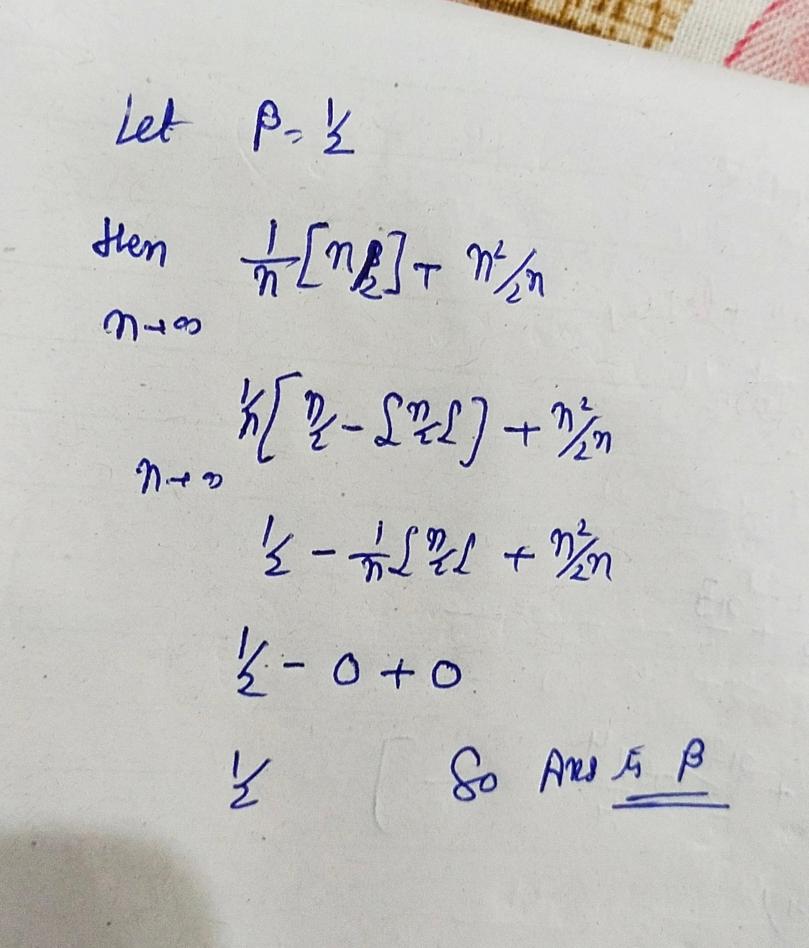 Let β = 1/2
then 1/n [n/2] + n²/2n
n→∞
1/n [n/2 - {n/2}] + n²/2n
n→∞
1/2 - 1/n {n/2} + n²/2n
1/2 - 0 + 0
1/2 So Ans is β